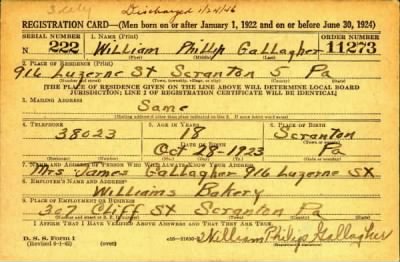 Discharged 1/24/46
REGISTRATION CARD—(Men born on or after January 1, 1922 and on or before June 30, 1924)
SERIAL NUMBER 1. NAME (Print) ORDER NUMBER
N 222 William Philip Gallagher 11273
(First) (Middle) (Last)
2. PLACE OF RESIDENCE (Print)
916 Luzerne St Scranton 5 Pa
[THE PLACE OF RESIDENCE GIVEN ON THE LINE ABOVE WILL DETERMINE LOCAL BOARD
JURISDICTION; LINE 2 OF REGISTRATION CERTIFICATE WILL BE IDENTICAL]
3. MAILING ADDRESS
Same
4. TELEPHONE 5. AGE IN YEARS 6. PLACE OF BIRTH
38023 18 Scranton
DATE OF BIRTH
Oct 1923 Pa
7. NAME AND ADDRESS OF PERSON WHO WILL ALWAYS KNOW YOUR ADDRESS
Mrs James Gallagher 916 Luzerne St
8. EMPLOYER'S NAME AND ADDRESS
Williams Bakery
307 Cliff St Scranton Pa
I AFFIRM THAT I HAVE VERIFIED ABOVE ANSWERS AND THAT THEY ARE TRUE.
D. S. S. Form 1
William Philip Gallagher